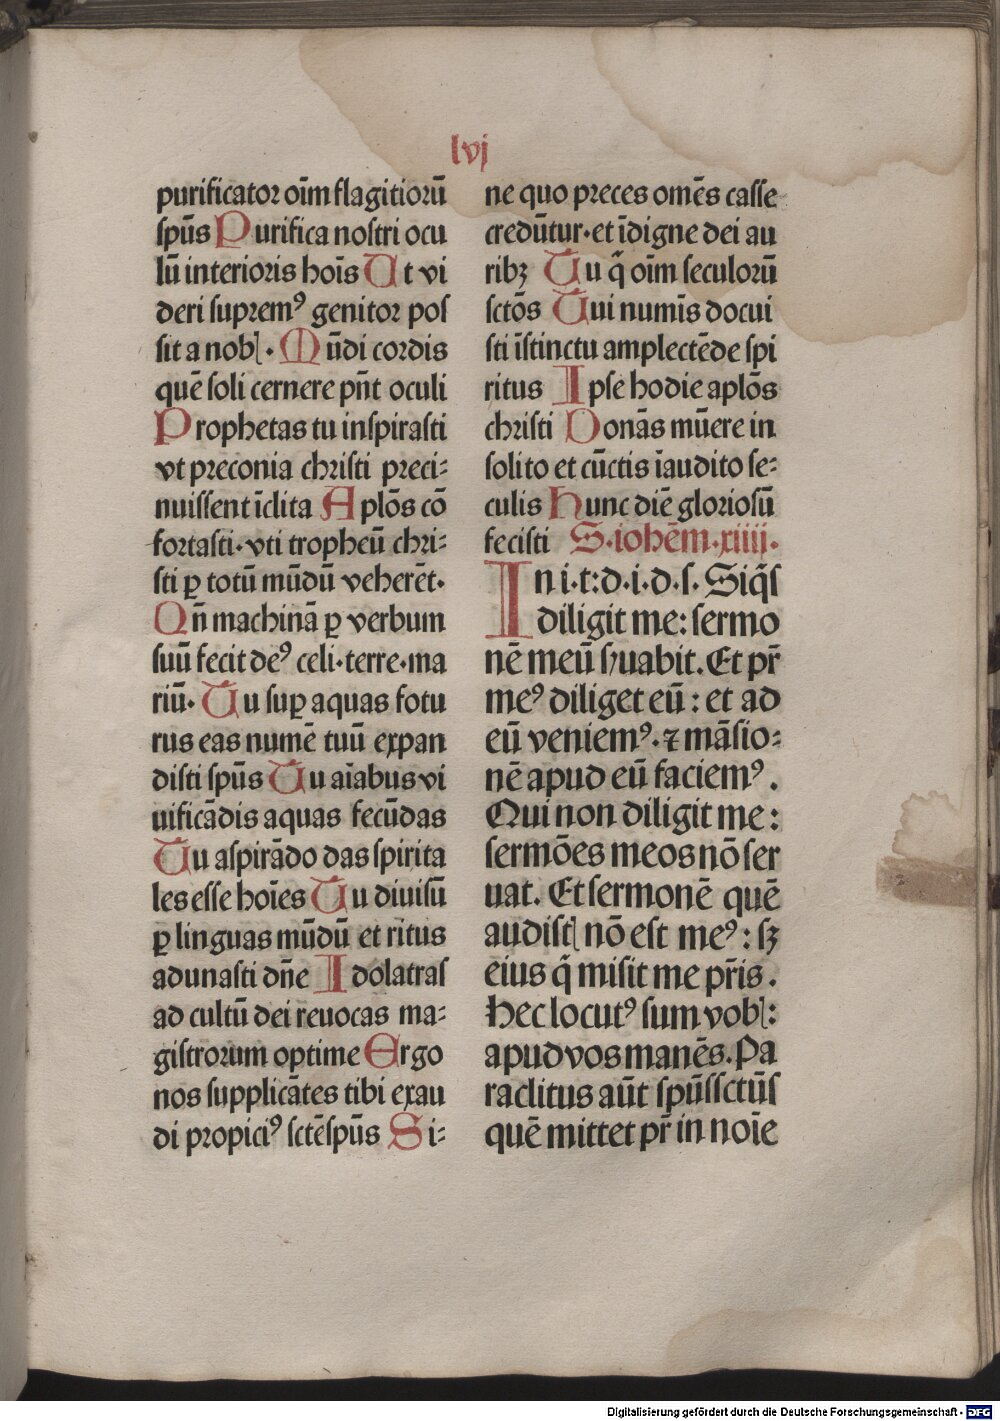 lvj
purificator oīm flagitiorū
ſpūs Purifica noſtri ocu
lū interioris hoīs Ut vi
deri ſuprem⁹ genitor poſ
ſit a nobꝭ. Mūdi cordis
quē ſoli cernere pn̄t oculi
Prophetas tu inſpiraſti
vt preconia chriſti preci⸗
nuiſſent īclita Aplōs cō
fortaſti·vti tropheū chri⸗
ſti ꝑ totū mūdū veherēt·
Qn̄ machinā ꝑ verbum
ſuū fecit de⁹ celi·terre·ma
riū· Tu ſuꝑ aquas fotu
rus eas numē tuū expan
diſti ſpūs Tu aīabus vi
uificādis aquas fecūdas
Tu aſpirādo das ſpirita
les eſſe hoīes Tu diuiſū
ꝑ linguas mūdū et ritus
adunaſti dn̄e Idolatras
ad cultū dei reuocas ma⸗
giſtrorum optime Ergo
nos ſupplicātes tibi exau
di propici⁹ ſctēſpūs Si⸗
ne quo preces omēs caſſe
credūtur·et īdigne dei au
ribꝫ Tu q̄ oīm ſeculorū
ſctōs Tui numīs docui
ſti īſtinctu amplectēde ſpi
ritus Ipſe hodie aplōs
chriſti Donās mūere in
ſolito et cūctis īaudito ſe⸗
culis Hunc diē glorioſū
feciſti S·iohēm·xiiij·
In i·t:d·i·d·ſ· Siq̄ſ
diligit me: ſermo
nē meū ſƞuabit. Et pr̄
me⁹ diliget eū : et ad
eū veniem⁹·ꝛ māſio⸗
nē apud eū faciem⁹.
Qui non diligit me:
ſermōes meos nō ſer
uat. Et ſermonē quē
audiſtꝭ nō eſt me⁹: ſꝫ
eius q̄ miſit me pr̄is.
Hec locut⁹ ſum vobꝭ:
apud vos manēs. Pa
raclitus aūt ſpūſſctūſ
quē mittet pr̄ in noīe
Digitalisierung gefördert durch die Deutsche Forschungsgemeinschaft - DFG